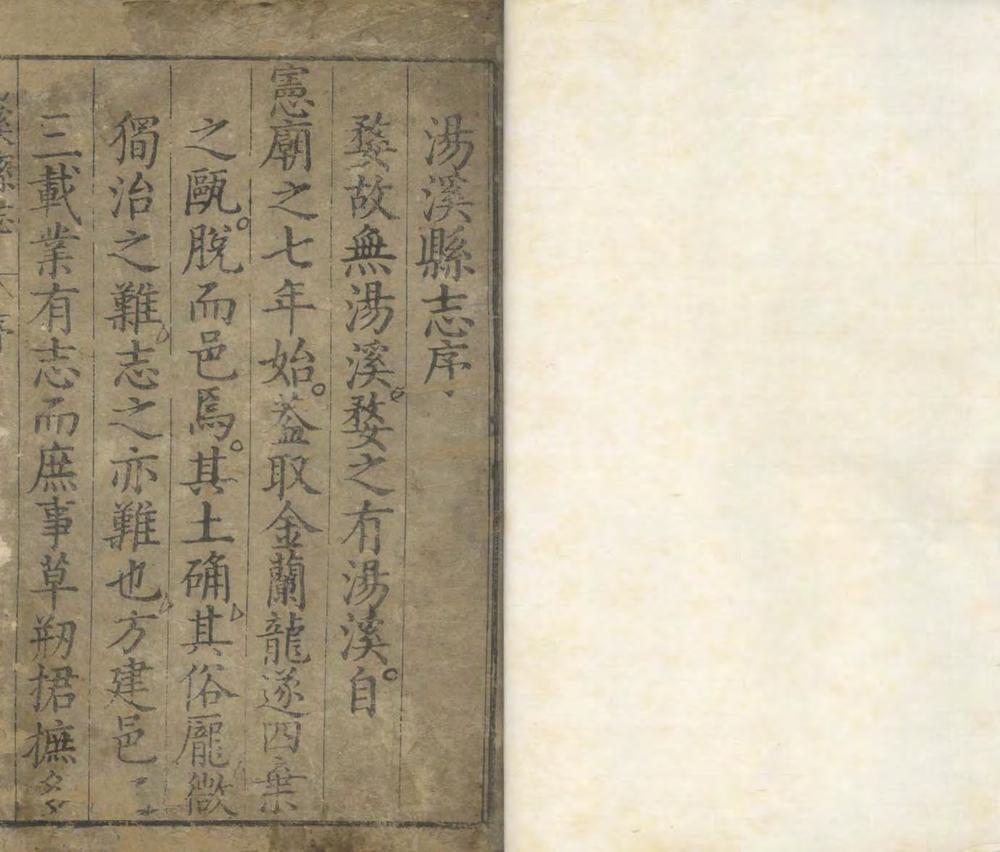 湯溪縣志序
婺故無湯溪婺之有湯溪自
憲廟之七年始葢取金蘭龍遂四棄
之甌脫而邑焉其土确其俗龎微
獨治之難志之亦難也方建邑
三載業有志而庶事草剏捃摭多
溪縣志 序